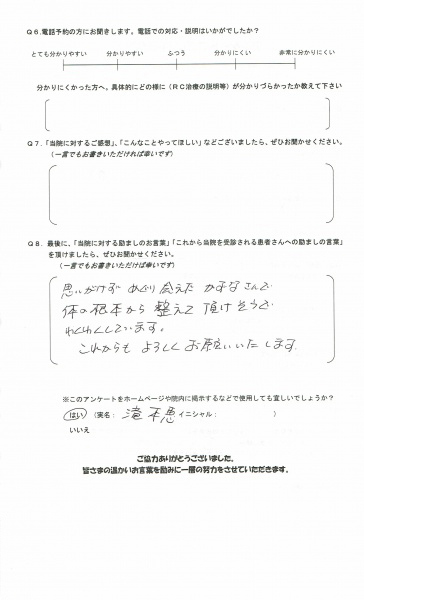 Ｑ６.電話予約の方にお聞きします。電話での対応・説明はいかがでしたか？
とても分かりやすい　分かりやすい　ふつう　分かりにくい　非常に分かりにくい
分かりにくかった方へ。具体的にどの様に（ＲＣ治療の説明等）が分かりづらかったか教えて下さい
Ｑ７.「当院に対するご感想」、「こんなことやってほしい」などございましたら、ぜひお聞かせください。
（一言でもお書きいただければ幸いです）
Ｑ８. 最後に、「当院に対する励ましのお言葉」「これから当院を受診される患者さんへの励ましの言葉」
を頂けましたら、ぜひお聞かせください。
（一言でもお書きいただけば幸いです）
思いがけず めぐり会えた かずなさんで
体の根本から 整えて 頂けそうで
わくわくしています。
これからも よろしく お願いいたします
※このアンケートをホームページや院内に掲示するなどで使用しても宜しいでしょうか？
はい（実名： イニシャル：　）
いいえ
ご協力ありがとうございました。
皆さまの温かいお言葉を励みに一層の努力をさせていただきます。